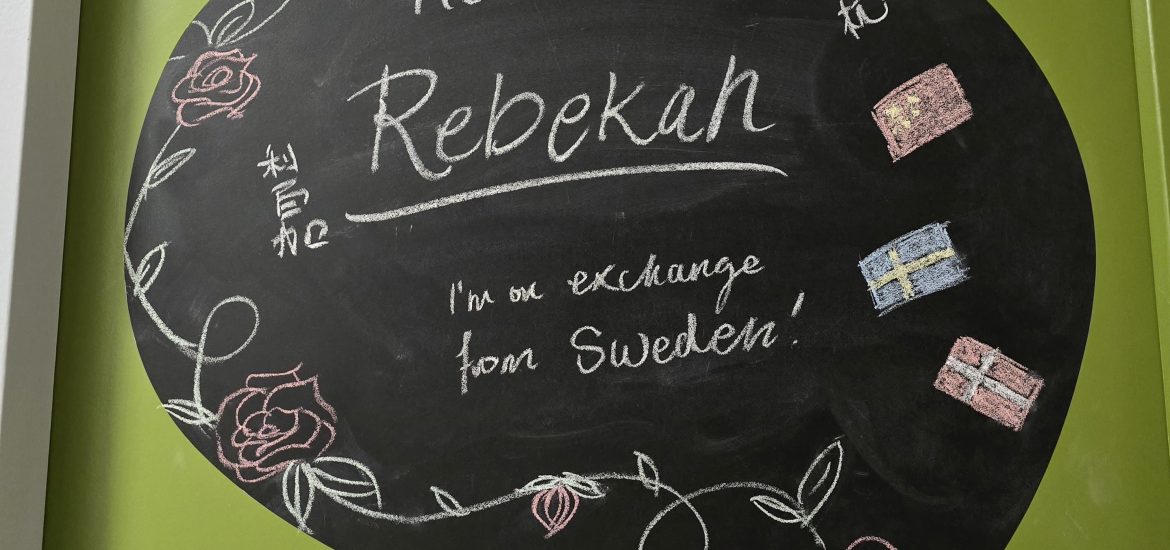 Rebekah
利百加
I'm on exchange
from Sweden!